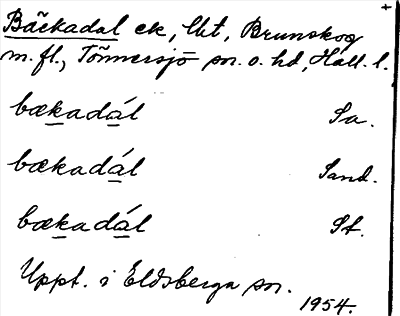 Bäckadal ek, Ut, Brunskog
m. fl., Tönnersjö sn. o. hd, Hall. l.
bækadál Sa.
bækadál Sand.
bækadál St.
Uppt. i Eldsberga sn.
1954.